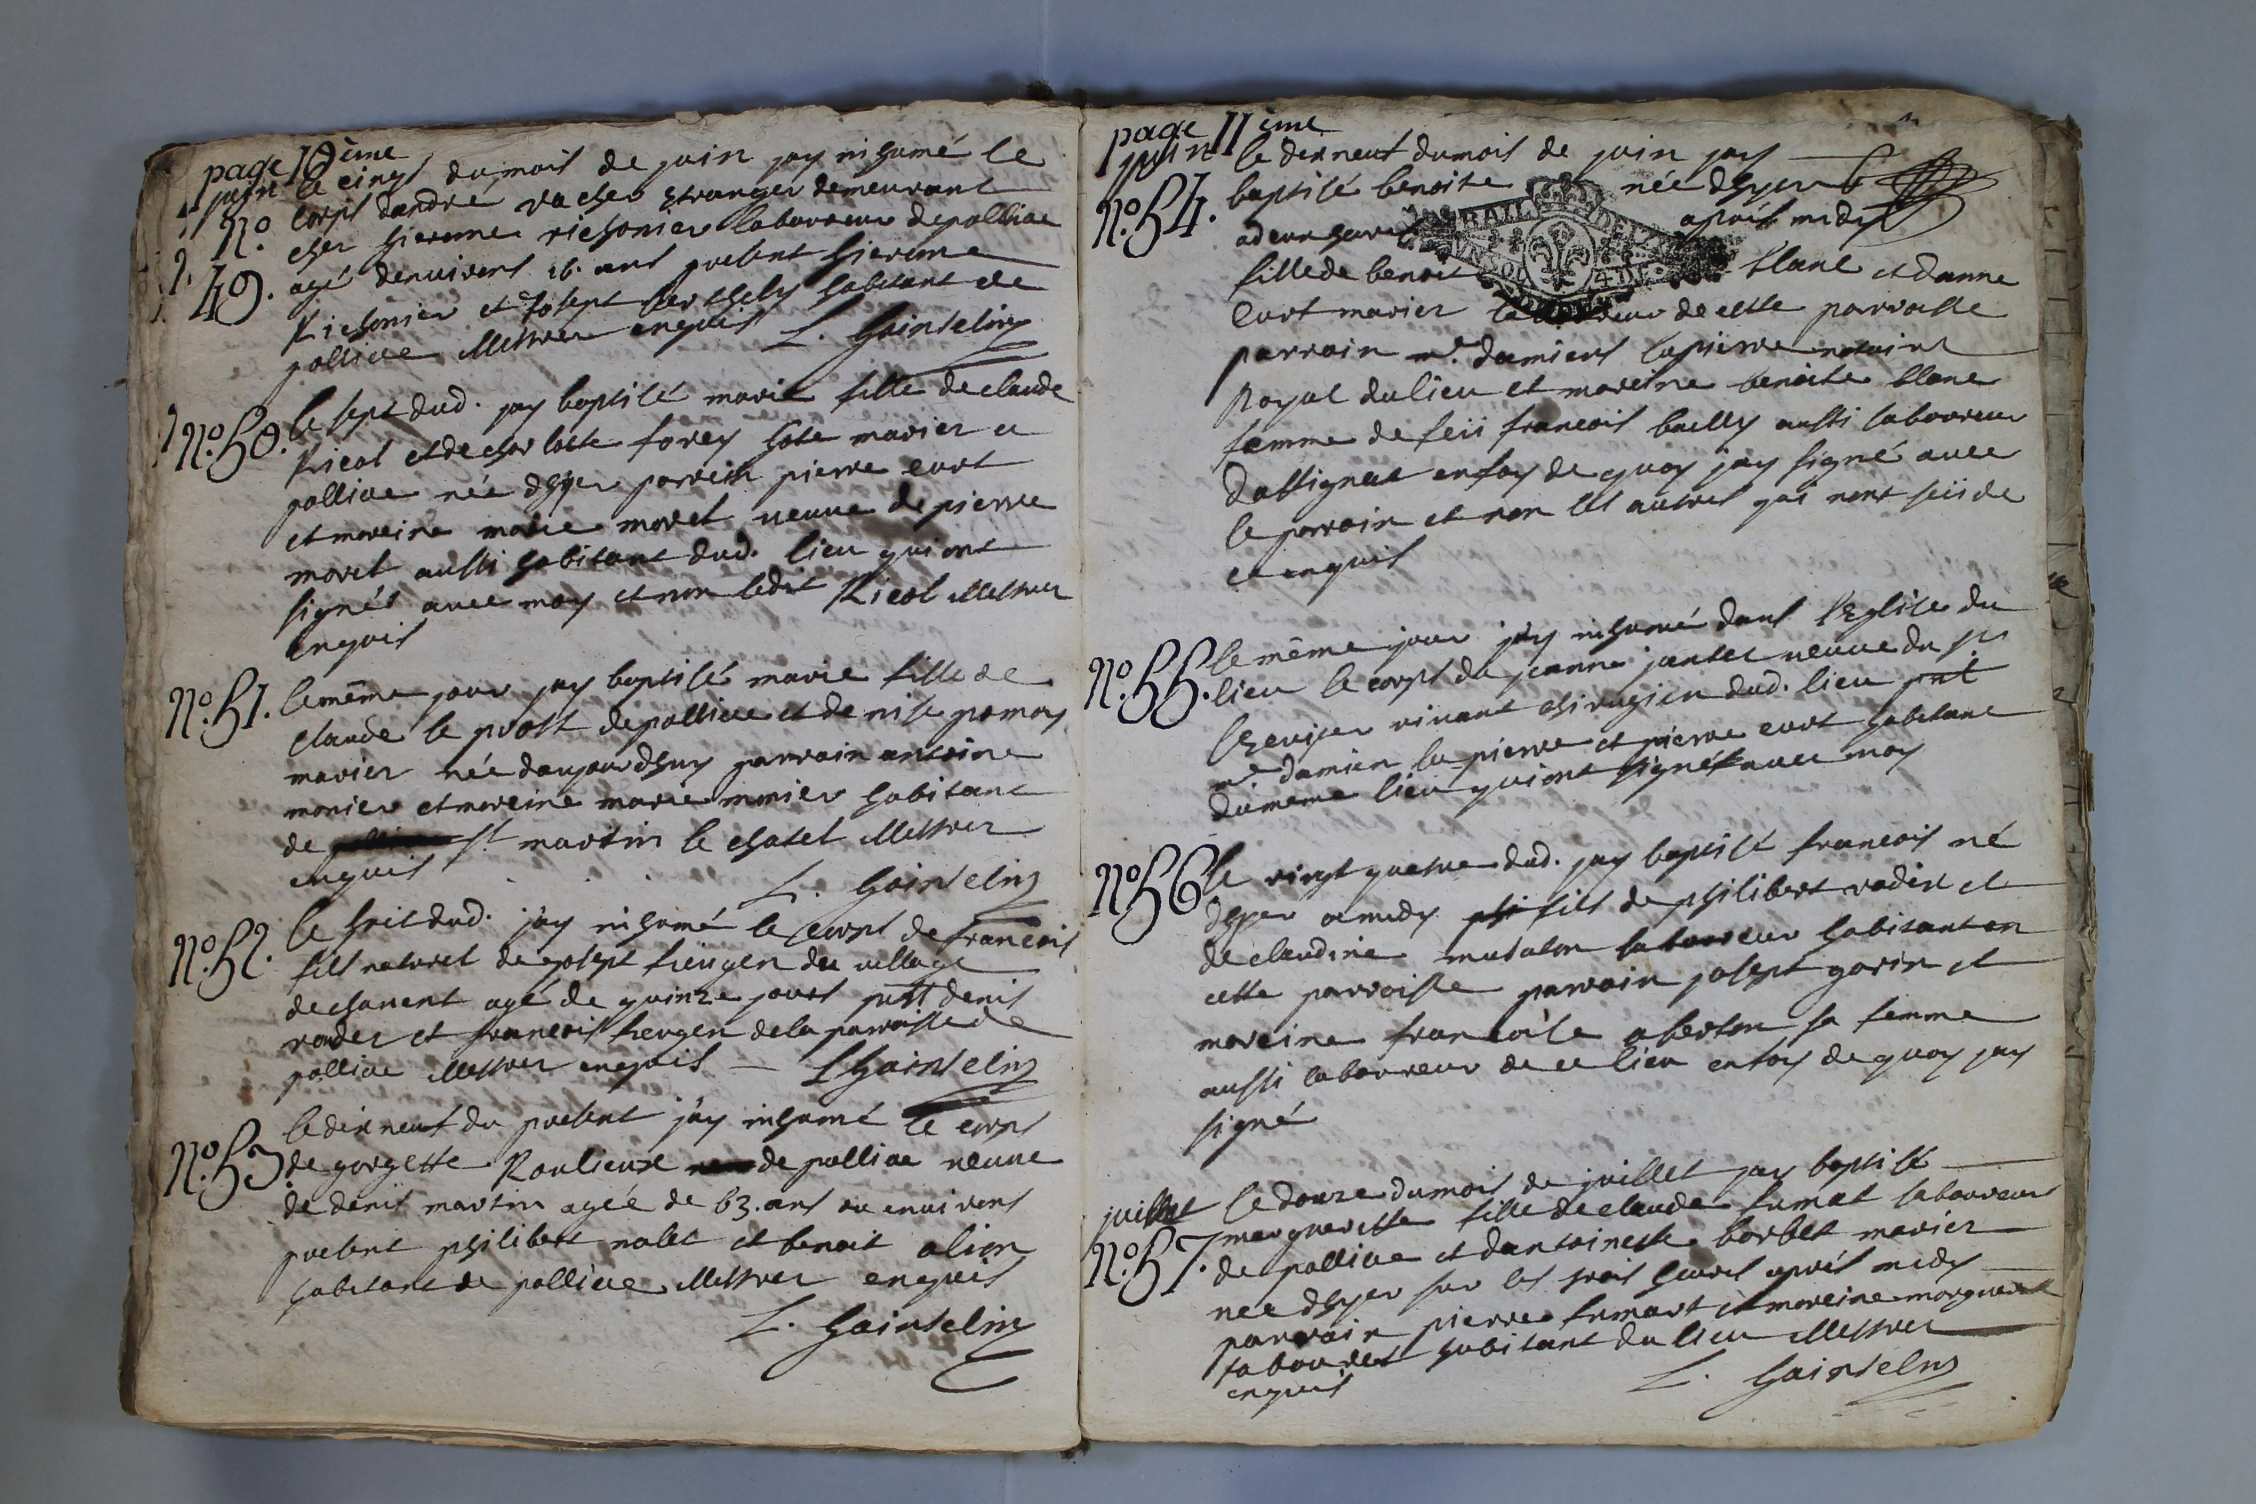 page 10ème
juin le cinq dumois de juin jay inhumé le
No. 49. corps dandré vacher etranger demeurant
cher hierome richonier laboureur de polliac
agé denvirons 16. ans present hierome
Richonier et Josept berthely habitant de
polliac illettrer enquis L. Gainselin
No. 50. le sept dud. jay baptisé marie fille de claude
Ricol et de charlotte forey hote marier a
polliac née dhyer parrein pierre curt
et mareine marie morel veuve de pierre
morel aussi habitant dud. lieu qui ont
signés avec moy et non ledit Ricol illettrer
enquis
No. 51. le même jour jay baptisé marie fille de
claude le prost de polliac et denise pomay
marier née daujourdhuy parrain antoine
monier et mareine marie monier habitant
de st. martin le chatel illettrer
enquis
L. Gainselin
No. 52. le huit dud. jay inhumé le corps de francois
fils naturel de josept fieugen du village
de chanent agé de quinze jours pnt denis
rondet et francois feugen de la parroisse de
polliac illettrer enquis — L Gainselin
No. 53. le dix neuf du present jay inhumé le corps
de gorgette Roulieux de polliac veuve
de denis martin agée de 63. ans ou environs
present philibert nalet et benoit alion
habitant de polliac illettrer enquis
L. Gainselin
page 11ème
juin le dix neuf dumois de juin jay
No. 54. baptisé benoite née dhyer
a deux heures apres midy
fille de benoit blanc et danne
Curt marier laboureur de cette parroisse
parrain me. damiens lapierre notaire
Royal du lieu et mareine benoite blanc
femme de feü francois bailly aussi laboureur
dattignat en foy de quoy jay signé avec
le parrain et non les autres qui nont seü de
ce enquis
No. 55. le même jour jay inhumé dans l'Eglise du
lieu le corps da jeanne jantet veuve du sr.
vivant chirugien dud. lieu pnt
me damien la pierre et pierre curt habitant
du meme lieu qui ont signés avec moy
No. 56 le vingt quatre dud. jay baptisé francois né
dhyer a midy fils de philibert vadin et
de claudine mutalon laboureur habitant en
cette parroisse parrain josept gorin et
mareine francoise aberton sa femme
aussi laboureur de ce lieu en foy de quoy jay
signé
juillet le douze dumois de juillet jay baptisé
No. 57. marguerette fille de claude fumat laboureur
de polliac et dantoinette borbet marier
née dhyer sur les trois heures aprés midy
parrain pierre fumart et mareine marguerite
tabouret habitant du lieu illettrer
enquis L. Gainselin